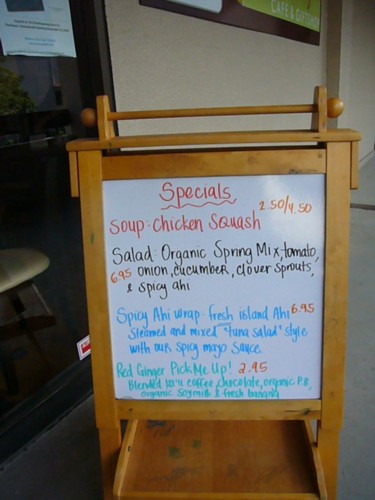 Specials
Soup-Chicken Squash 2.50/4.50
Salad: Organic Spring Mix, tomato,
6.95 onion, cucumber, clover sprouts,
& spicy ahi
Spicy Ahi wrap fresh island Ahi 6.95
Steamed and mixed "tuna salad" style
with our spicy mayo sauce.
Red Ginger Pick Me Up! 2.95
Blended iced coffee, chocolate, organic P.B,
organic soymilk & fresh banana